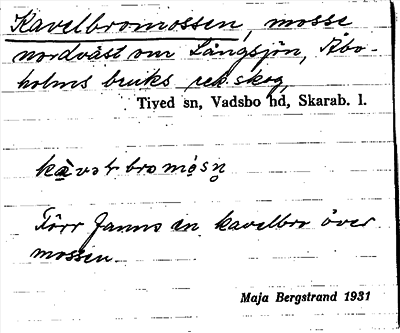 Kavelbromossen, mosse
nordväst om Långsjön, Åbo-
holms bruks rekskog,
Tived sn, Vadsbo hd, Skarab. l.
Förr fanns en kavelbro över
mossen.
Maja Bergstrand 1931